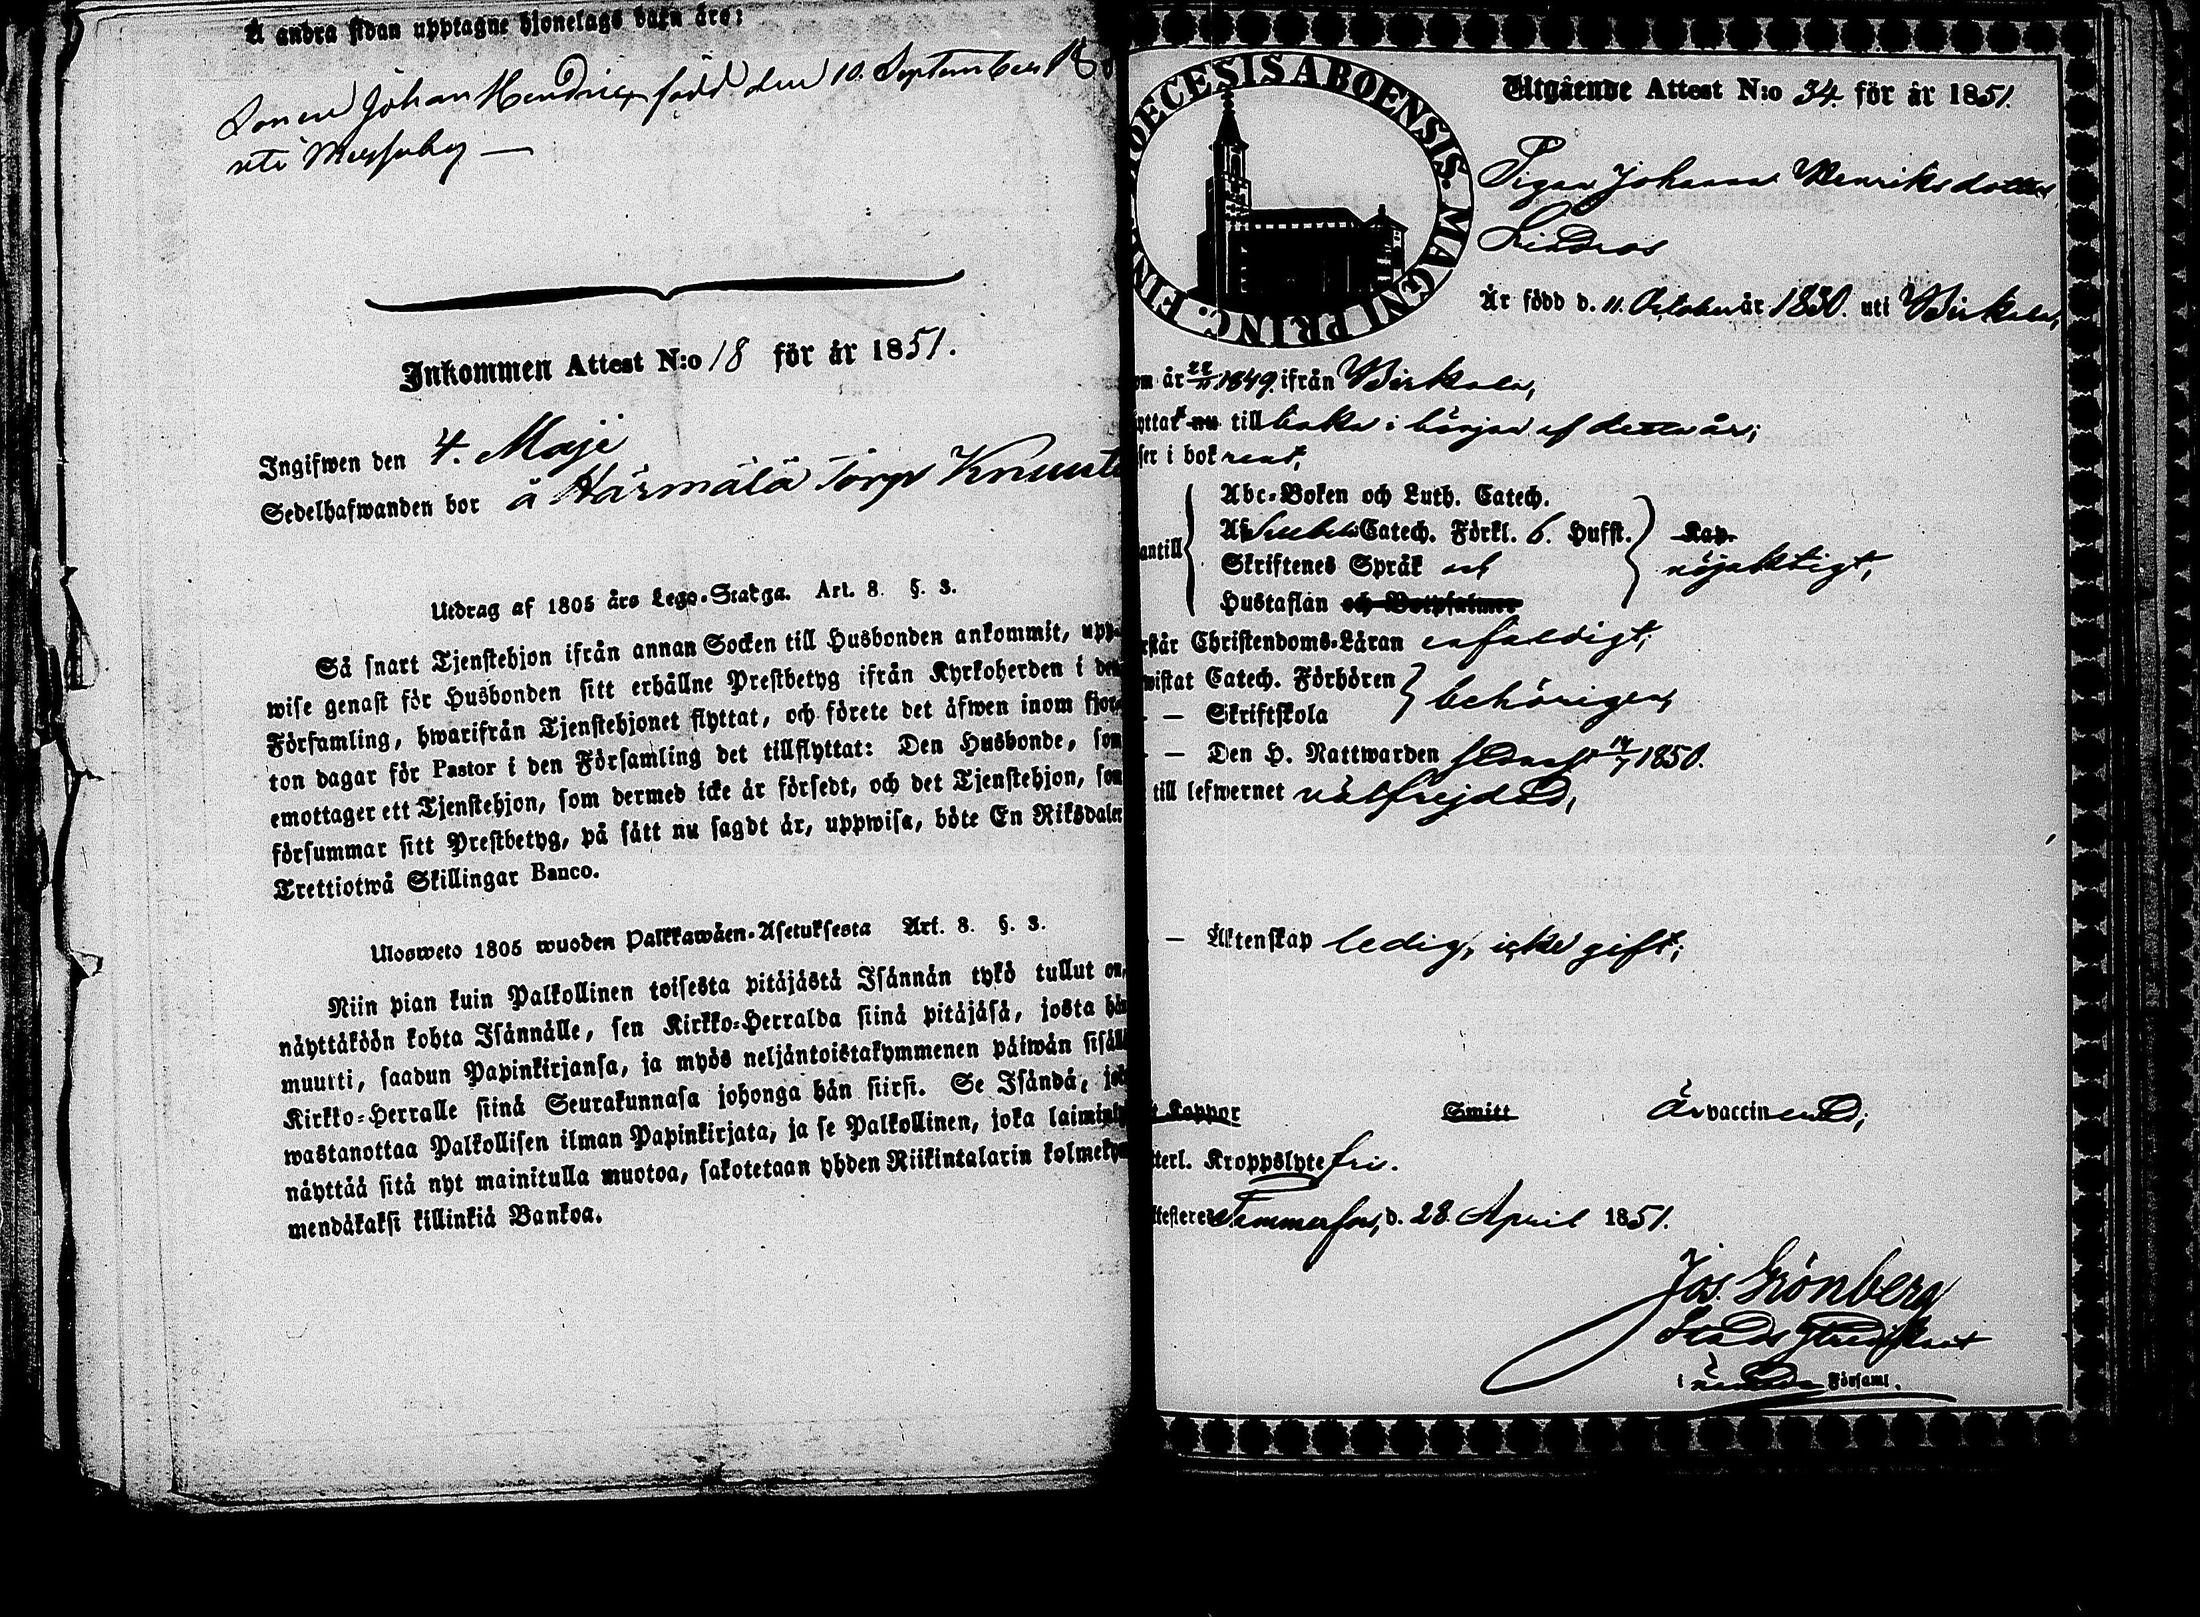 Å andra sidan upptagne hjonelags barn äro:
Sonen Johan Hendric, född den 10. September 18
uti Messuby —
Inkommen Attest N:o 18 för år 1851.
Ingifwen den 4. Maji
Sedelhafwanden bor å Härmälä Torp Knuut
Utdrag af 1805 års Lego-Stadga. Art. 8. §. 3.
Så snart Tjenstehjon ifrån annan Socken till Husbonden ankommit, upp-
wise genast för Husbonden sitt erhållne Prestbetyg ifrån Kyrkoherden i den
Församling, hwarifrån Tjenstehjonet flyttat, och förete det äfwen inom fjor-
ton dagar för Pastor i den Församling det tillflyttat: Den Husbonde, som
emottager ett Tjenstehjon, som dermed icke är försedt, och det Tjenstehjon, som
försummar sitt Prestbetyg, på sätt nu sagdt är, uppwisa, böte En Riksdaler
Trettiotwå Skillingar Banco.
Ulosweto 1805 wuoden Palkkawäen-Asetuksesta Art. 8. §. 3.
Niin pian kuin Palkollinen toisesta pitäjästä Isännän tykö tullut on,
näyttäköön kohta Isännälle, sen Kirkko-Herralda siinä pitäjäsä, josta hän
muutti, saadun Papinkirjansa, ja myös neljäntoistakymmenen päiwän sisäll
Kirkko-Herralle siinä Seurakunnasa johonga hän siirsi. Se Isändä, jok
wastanottaa Palkollisen ilman Papinkirjata, ja se Palkollinen, joka laiminly
näyttää sitä nyt mainitulla muotoa, sakotetaan yhden Riikintalarin kolmeky
mendäkaksi killinkiä Bankoa.
DIOECESIS ABOENSIS. MAGNI PRINC. FIN
Utgående Attest N:o 34 för år 1851.
Pigan Johanna Henriksdotter
Lindroos
Är född d. 11. October år 1830. uti Birkala,
om år 22/11 1849. ifrån Birkala,
yttat nu till baka i början af detta år;
ser i bok rent,
antill
Abc-Boken och Luth. Catech.
Af Catech. Förkl. 6. Hufst. Kap.
Skriftenes Språk och nöjaktigt,
Hustaflan och Botpsalmer
rstår Christendoms-Läran enfaldigt;
wistat Catech. Förhören behörigen,
— Skriftskola
— Den H. Nattwarden sednast 14/7 1850.
till lefwernet välfrejdad,
— Äktenskap ledig, icke gift;
t Koppor Smitt Är vaccinerad;
tterl. Kroppslyte fri.
ttesteres Tammerfors, d. 28. April 1851.
Jos. Grönberg
Stads Predikant
i Församl.